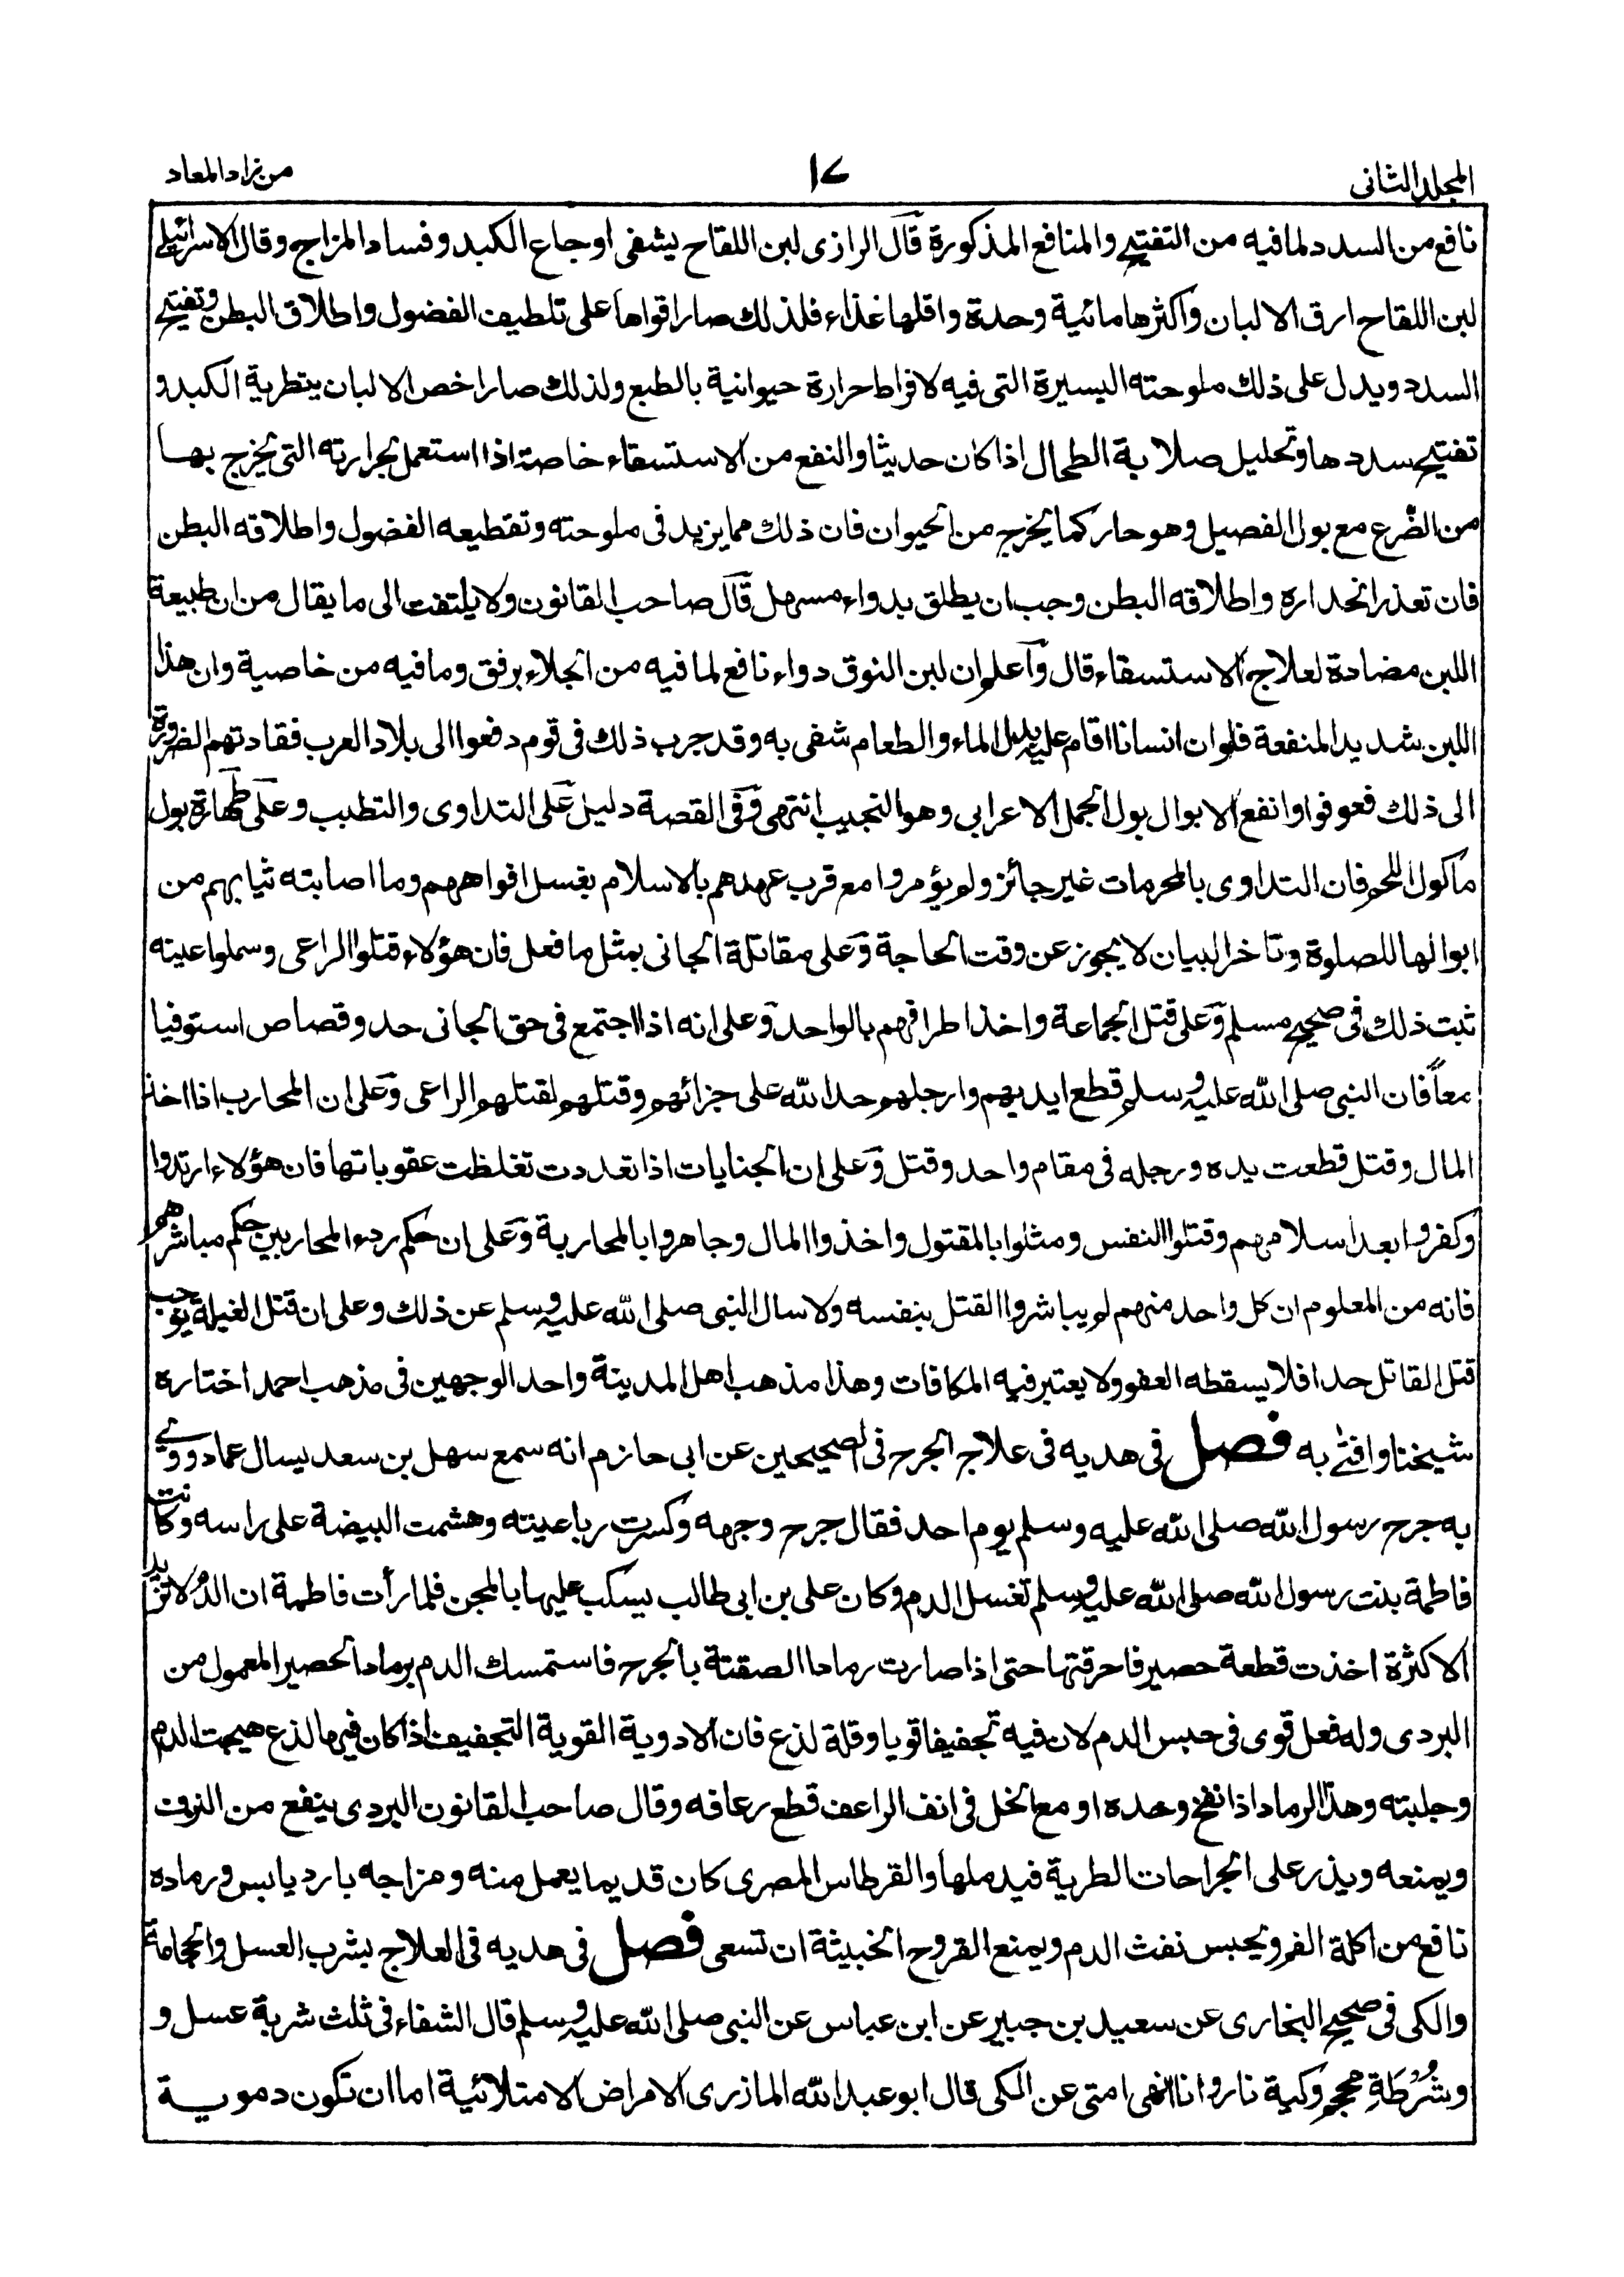 المجلد الثانى
١٧
من زاد المعاد
نافع من السدد لما فيه من التفتيح والمنافع المذكورة قال الرازى لبن اللقاح يشفى اوجاع الكبد وفساد المزاج وقال الاسرائيلى
لبن اللقاح ارق الالبان واكثرها مائية وحدة واقلها غذاء فلذلك صار اقواها على تلطيف الفضول واطلاق البطن وتفتيح
السدد ويدل على ذلك ملوحته اليسيرة التى فيه لافراط حرارة حيوانية بالطبع ولذلك صار اخص الالبان بتطرية الكبد و
تفتيح سددها وتحليل صلابة الطحال اذا كان حديثا والنفع من الاستسقاء خاصة اذا استعمل بحرارته التى يخرج بها
من الضرع مع بول الفصيل وهو حار كما يخرج من الحيوان فان ذلك مما يزيد فى ملوحته وتقطيعه الفضول واطلاقه البطن
فان تعذر انحداره واطلاقه البطن وجب ان يطلق بدواء مسهل قال صاحب القانون ولا يلتفت الى ما يقال من ان طبيعة
اللبن مضادة لعلاج الاستسقاء قال واعلم ان لبن النوق دواء نافع لما فيه من الجلاء برفق وما فيه من خاصية وان هذا
اللبن شديد المنفعة فلو ان انسانا اقام عليه بدل الماء والطعام شفى به وقد جرب ذلك فى قوم دفعوا الى بلاد العرب فقادتهم الضرورة
الى ذلك فعوفوا وانفع الابوال بول الجمل الاعرابى وهو النجيب انتهى وفى القصة دليل على التداوى والتطبب وعلى طهارة بول
ماكول اللحم فان التداوى بالمحرمات غير جائز ولم يؤمروا مع قرب عهدهم بالاسلام بغسل افواههم وما اصابته ثيابهم من
ابوالها للصلوة وتاخر البيان لا يجوز عن وقت الحاجة وعلى مقاتلة الجانى بمثل ما فعل فان هؤلاء قتلوا الراعى وسملوا عينه
ثبت ذلك فى صحيح مسلم وعلى قتل الجماعة واخذ اطرافهم بالواحد وعلى انه اذا اجتمع فى حق الجانى حد وقصاص استوفيا
معاً فان النبى صلى الله عليه وسلم قطع ايديهم وارجلهم حدا لله على جزائهم وقتلهم لقتلهم الراعى وعلى ان المحارب اذا اخذ
المال وقتل قطعت يده ورجله فى مقام واحد وقتل وعلى ان الجنايات اذا تعددت تغلظت عقوباتها فان هؤلاء ارتدوا
وكفروا بعد اسلامهم وقتلوا النفس ومثلوا بالمقتول واخذوا المال وجاهروا بالمحاربة وعلى ان حكم ردء المحاربين حكم مباشرهم
فانه من المعلوم ان كل واحد منهم لم يباشروا القتل بنفسه ولا سال النبى صلى الله عليه وسلم عن ذلك وعلى ان قتل الغيلة يوجب
قتل القاتل حدا فلا يسقطه العفو ولا يعتبر فيه المكافات وهذا مذهب اهل المدينة واحد الوجهين فى مذهب احمد اختاره
شيخنا وافتى به فصل فى هديه فى علاج الجرح فى الصحيحين عن ابى حازم انه سمع سهل بن سعد يسال عما دووى
به جرح رسول الله صلى الله عليه وسلم يوم احد فقال جرح وجهه وكسرت رباعيته وهشمت البيضة على راسه وكانت
فاطمة بنت رسول الله صلى الله عليه وسلم تغسل الدم وكان على بن ابى طالب يسكب عليها بالمجن فلما رأت فاطمة ان الدم لا تزيد
الا كثرة اخذت قطعة حصير فاحرقتها حتى اذا صارت رمادا الصقتة بالجرح فاستمسك الدم برماد الحصير المعمول من
البردى وله فعل قوى فى حبس الدم لان فيه تجفيفا قويا وقلة لذع فان الادوية القوية التجفيف اذا كان فيها لذع هيجت الدم
وجلبته وهذا الرماد اذا نفخ وحده او مع الخل فى انف الراعف قطع رعافه وقال صاحب القانون البردى ينفع من النزف
ويمنعه ويذر على الجراحات الطرية فيدملها والقرطاس المصرى كان قديما يعمل منه ومزاجه بارد يابس ورماده
نافع من اكلة الفم ويحبس نفث الدم ويمنع القروح الخبيثة ان تسعى فصل فى هديه فى العلاج بشرب العسل والحجامة
والكى فى صحيح البخارى عن سعيد بن جبير عن ابن عباس عن النبى صلى الله عليه وسلم قال الشفاء فى ثلث شربة عسل و
وشُرْطَةِ محجم وكية نار وانا انهى امتى عن الكى قال ابو عبد الله المازرى الامراض الامتلائية اما ان تكون دموية